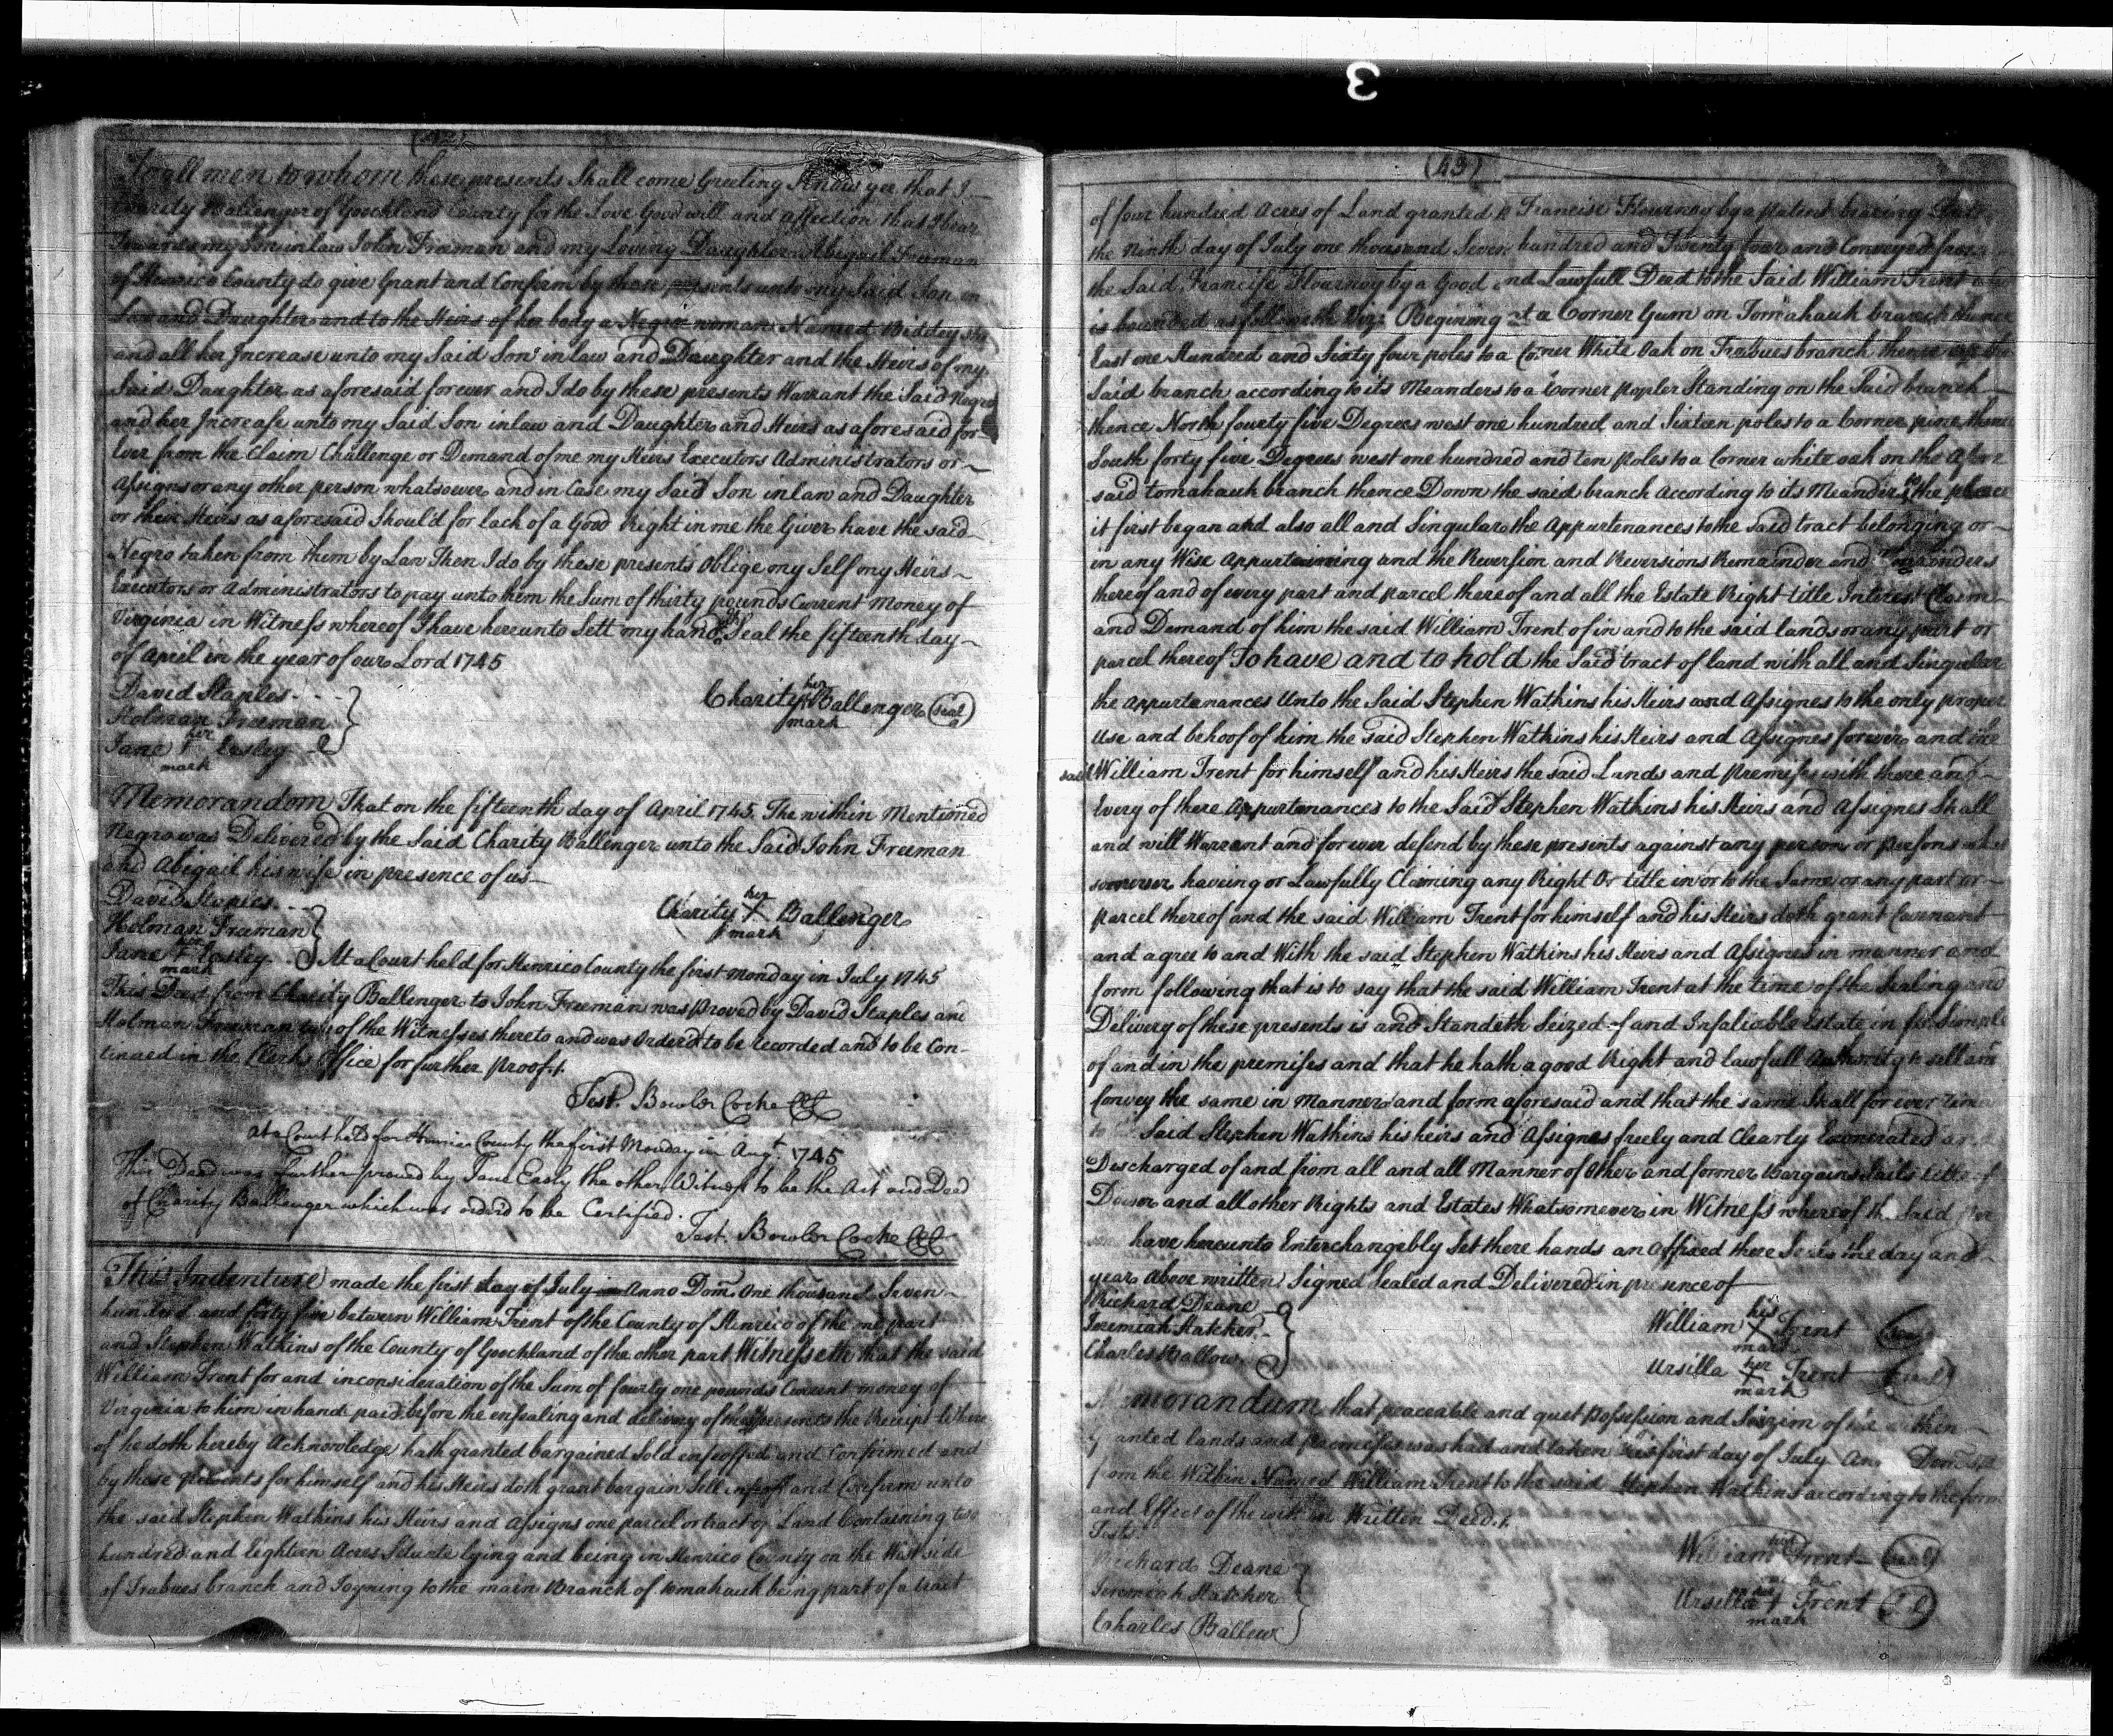 To all men to whom these presents Shall come Greeting Know yee that I
Charity Ballenger of Goochland County for the Love Good will and Affection that I bear
Towards my Son in law John Freeman and my Loving Daughter Abigail Freeman
of Henrico County do give Grant and Confirm by these presents unto my Said Son in
Law and Daughter and to the Heirs of her body a Negro woman Named Biddey She
and all her Increase unto my Said Son in law and Daughter and the Heirs of my
Said Daughter as aforesaid forever and I do by these presents Warrant the Said Negro
and her Increase unto my Said Son in law and Daughter and Heirs as aforesaid for
Ever from the Claim Challenge or Demand of me my Heirs Executors Administrators or
Assigns or any other person whatsoever and in Case my Said Son in law and Daughter
or their Heirs as aforesaid Should for lack of a Good Right in me the Giver have the said
Negro taken from them by Law Then I do by these presents Oblige my Self my Heirs
Executors or Administrators to pay unto them the Sum of thirty pounds Current Money of
Virginia in Witness whereof I have hereunto Sett my hand & Seal the fifteenth day
of April in the year of our Lord 1745
David Staples
Holman Freeman
Jane her mark Easley
Charity her mark Ballenger (seal)
Memorandom That on the fifteenth day of April 1745. The within Mentioned
Negro was Delivered by the Said Charity Ballenger unto the Said John Freeman
and Abigail his wife in presence of us
David Staples
Holman Freeman
Jane her mark Easley
Charity her X mark Ballenger
At a Court held for Henrico County the first Monday in July 1745
This Deed from Charity Ballenger to John Freeman was proved by David Staples and
Holman Freeman two of the Witnesses thereto and was Order'd to be recorded and to be Con-
tinued in the Clerks Office for further proof.
Test. Bowler Cocke
At a Court held for Henrico County the first Monday in Augt. 1745
This Deed was further proved by Jane Easly the other Witness to be the Act and Deed
of Charity Ballenger which was ordered to be Certified.
Test. Bowler Cocke
This Indenture made the first day of July Anno Dom. One thousand Seven
hundred and forty five between William Trent of the County of Henrico of the one part
and Stephen Watkins of the County of Goochland of the other part Witnesseth that the said
William Trent for and in consideration of the Sum of fourty one pounds Current money of
Virginia to him in hand paid before the ensealing and delivery of these presents the Receipt
of he doth hereby Acknowledge hath granted bargained Sold enfeoffed and Confirmed and
by these presents for himself and his Heirs doth grant bargain Sell enfeoff and Confirm unto
the said Stephen Watkins his Heirs and Assigns one parcel or tract of Land Containing two
hundred and Eighteen Acres Situate lying and being in Henrico County on the West side
of Trabues branch and Joyning to the main Branch of tomahauk being part of a tract
(43)
of four hundred Acres of Land granted to Francise Flournoy by a patent bearing Date
the Ninth day of July one thousand Seven hundred and Twenty four and Conveyed from
the Said Francise Flournoy by a Good and Lawfull Deed to the Said William Trent
is bounded as followeth Viz: Begining at a Corner Gum on Tomahauk branch thence
East one Hundred and Sixty four poles to a Corner White Oak on Trabues branch thence up the
Said branch according to its Meanders to a Corner popler Standing on the Said branch
thence North fourty five Degrees west one hundred and Sixteen poles to a Corner pine thence
South forty five Degrees west one hundred and ten poles to a Corner white oak on the afore
said tomahauk branch thence Down the said branch according to its Meanders to the place
it first began and also all and Singular the Appurtenances to the said tract belonging or
in any Wise Appurtaining and the Reversion and Reversions Remainder and Remainders
thereof and of every part and parcel thereof and all the Estate Right title Interest Claim
and Demand of him the said William Trent of in and to the said lands or any part or
parcel thereof To have and to hold the Said tract of land with all and Singular
the appurtenances Unto the Said Stephen Watkins his Heirs and Assignes to the only proper
Use and behoof of him the Said Stephen Watkins his Heirs and Assignes forever and the
said William Trent for himself and his Heirs the said Lands and premises with there and
Every of there Appurtenances to the Said Stephen Watkins his Heirs and Assignes Shall
and will Warrant and forever defend by these presents against any person or Persons what
somever having or Lawfully Claiming any Right Or title in or to the Same or any part or
parcel thereof and the said William Trent for himself and his Heirs doth grant Covenant
and agree to and With the said Stephen Watkins his Heirs and Assignes in manner and
form following that is to say that the said William Trent at the time of the Sealing and
Delivery of these presents is and Standeth Seized of and Infaliable Estate in fee Simple
of and in the premises and that he hath a good Right and lawfull Authority to sell and
Convey the same in Manner and form aforesaid and that the same Shall for ever
to Said Stephen Watkins his heirs and Assignes freely and Clearly Exonerated
Discharged of and from all and all Manner of Other and former Bargains Sails title of
Dower and all other Rights and Estates Whatsomever in Witness whereof the Said
have hereunto Enterchangibly Set there hands an Affixed there Seals the day and
year above written Signed Sealed and Delivered in presence of
Richard Deane
Jeremiah Hatcher
Charles Ballow
William his X mark Trent (seal)
Ursilla her X mark Trent (seal)
Memorandum that peaceable and quiet Possession and Seizim of the within
Granted lands and premeses was had and taken this first day of July Dom
from the Within Named William Trent to the said Stephen Watkins according to the form
and Effect of the within Written Deed.
Test
Richard Deane
Jeremiah Hatcher
Charles Ballew
William his Trent (seal)
Ursilla her mark Trent
3